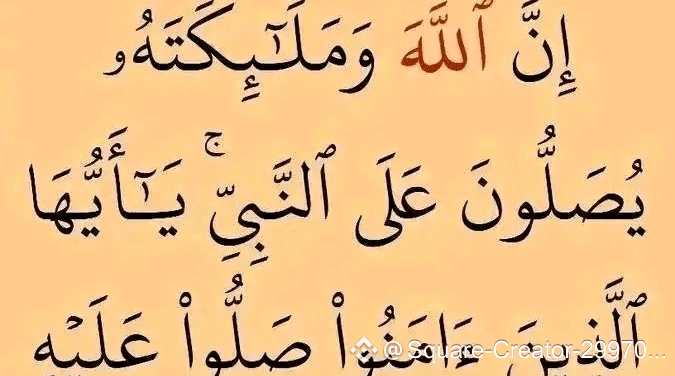 إِنَّ ٱللَّهَ وَمَلَـٰٓئِكَتَهُۥ
يُصَلُّونَ عَلَى ٱلنَّبِىِّ ۚ يَـٰٓأَيُّهَا
ٱلَّذِينَ ءَامَنُوا۟ صَلُّوا۟ عَلَيْهِ
@Square-Creator-29970...